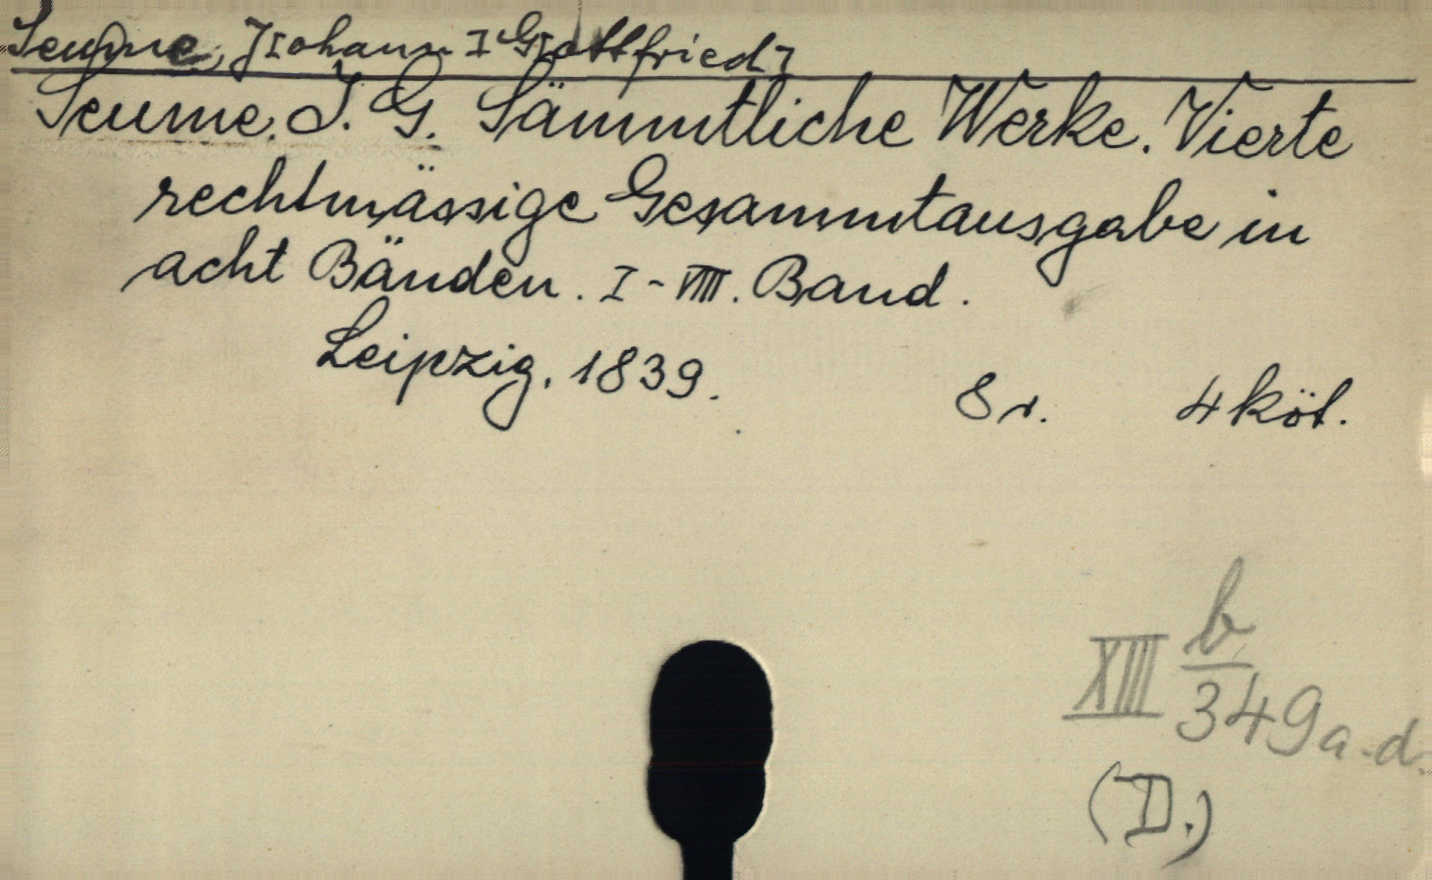 Seume, J[ohann] G[ottfried]
Seume. J. G. Sämmtliche Werke. Vierte
rechtmässige Gesammtausgabe in
acht Bänden. I-VIII. Band.
Leipzig, 1839. 8r. 4 köt.
XIII b/349 a-d.
(D.)